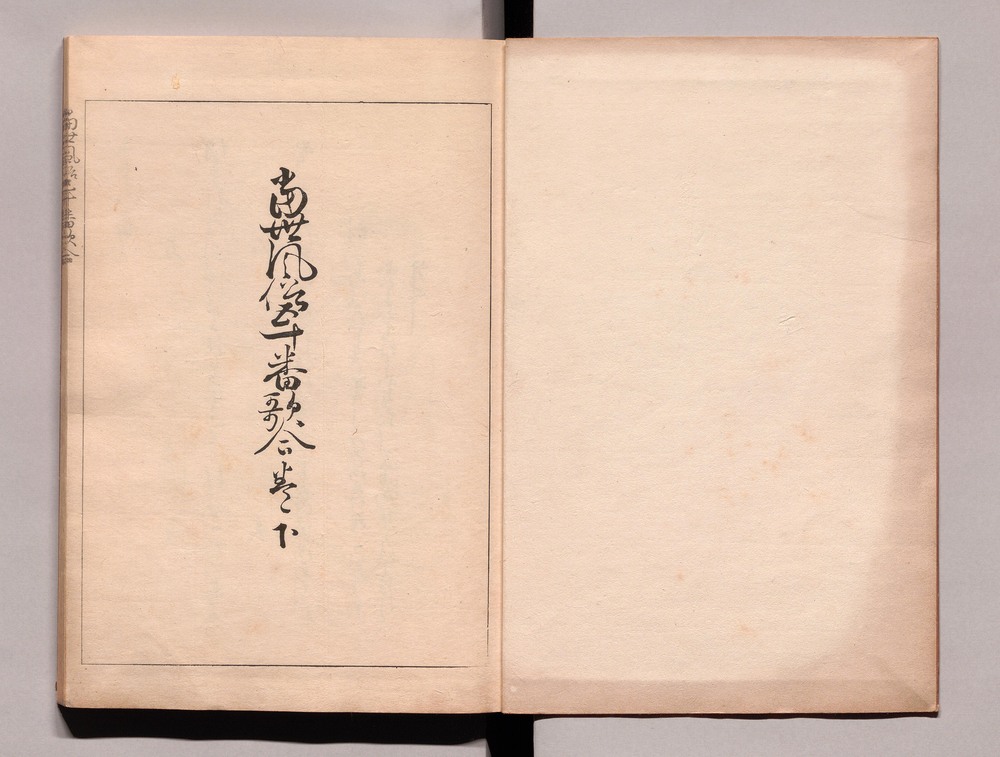 當世風俗五十番歌合巻下
當世風俗五十番歌合